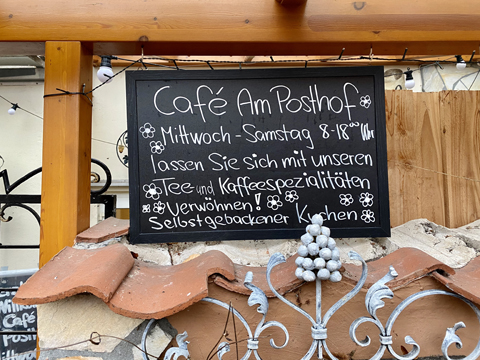 Café Am Posthof
Mittwoch - Samstag 8-18⁰⁰ Uhr
lassen Sie sich mit unseren
Tee und Kaffeespezialitäten
Verwöhnen!
Selbstgebackener Kuchen
Café